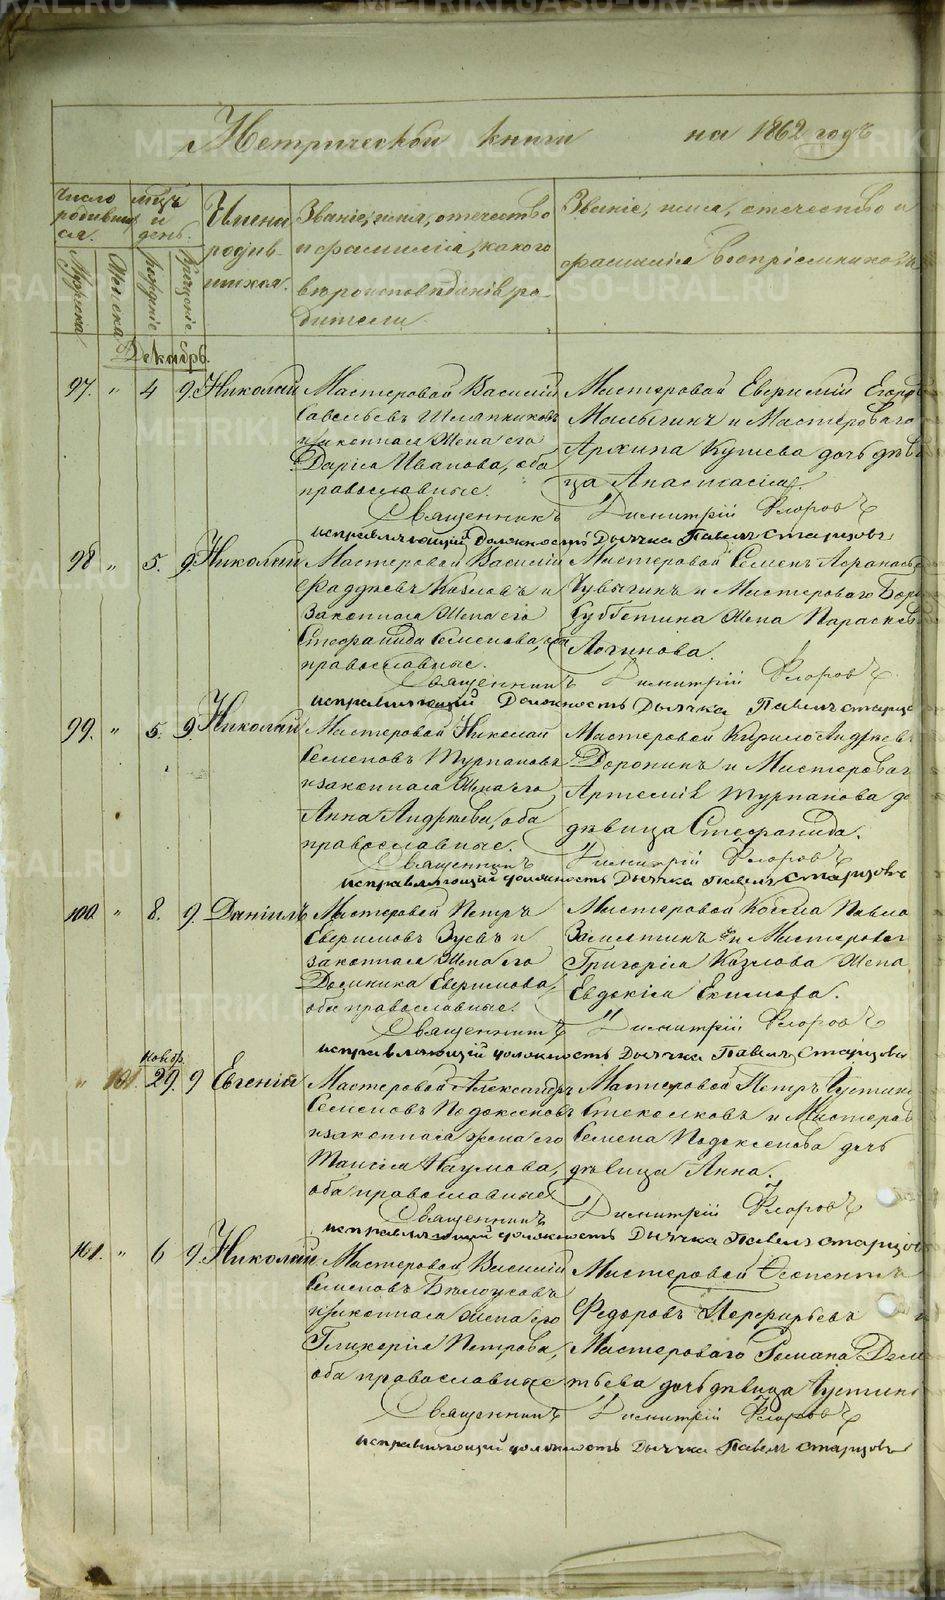 Метрической книги на 1862 годъ
Число родившихся.
мѣсяцъ и день.
Имена родившихся.
Званіе, имя, отчество и фамилія, какого вѣроисповѣданія родители.
Званіе, имя, отчество и фамилія воспріемниковъ
Мужеска
Женска
рожденіе
крещеніе
Декабрь.
97. " 4 9. Николай Мастеровой Василій Мастеровой Евфимій Егоро
Савельевъ Шляпниковъ Малыгинъ и Мастероваго
и законная жена его Архипа Кушева дочь дѣв
Дарія Иванова, оба ца Анастасія.
православные.
Священникъ Димитрій Флоровъ
исправляющій Должность Дьячка Павелъ Старцовъ
98 " 5. 9. Николай Мастеровой Василій Мастеровой Семенъ Афанась
Фаддѣевъ Козловъ и Чувыгинъ и Мастероваго
законная жена его Субботина жена Параскев
Стефанида Семенова, оба Логинова.
православные.
Священникъ Димитрій Флоровъ
исправляющій Должность Дьячка Павелъ Старцо
99. " 5. 9. Николай Мастеровой Николай Мастеровой Кирило Андреев
Семеновъ Турпановъ Доронинъ и Мастероваг
и законная жена его Артемія Турпанова до
Анна Андреева, оба дѣвица Стефанида.
православные.
Священникъ Димитрій Флоровъ
исправляющій должность Дьячка Павелъ Старцовъ
100. " 8. 9. Даніилъ Мастеровой Петръ Мастеровой Косма Павло
Евфимовъ Зуевъ и Замятинъ и Мастеровог
законная жена его Григорія Козлова жена
Домника Евфимова, Евдокія Екимова.
оба православные.
Священникъ Димитрій Флоровъ
исправляющій должность Дьячка Павелъ Старцовъ
Ноябр.
" 101. 29. 9 Евгенія Мастеровой Александръ Мастеровой Петръ Іустино
Семеновъ Подоксеновъ Стеколковъ и Мастеров
и законная жена его Семена Подоксенова дочь
Таисія Наумова, дѣвица Анна.
оба православные
Священникъ Димитрій Флоровъ
исправляющій должность Дьячка Павелъ Старцов
101. " 6 9. Николай Мастеровой Василій Мастеровой
Семеновъ Бѣлоусовъ Федоровъ
и законная жена его Мастероваго Романа Деме
Гликерія Петрова, тьева дочь дѣвица Іустин
оба православные
Священникъ Димитрій Флоровъ
исправляющій должность Дьячка Павелъ Старцовъ
METRIKI.GASO-URAL.RU